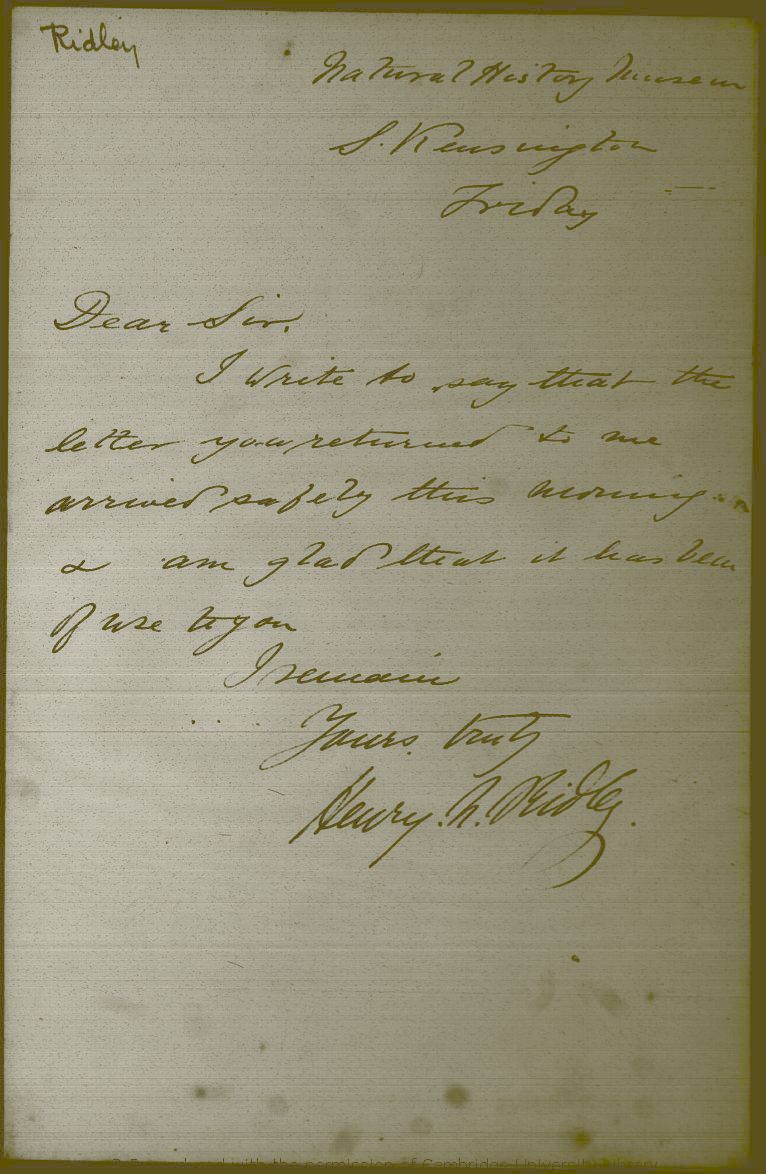 Ridley
Natural History Museum
S. Kensington
Friday
Dear Sir.
I write to say that the
letter you returned to me
arrived safely this morning
& am glad that it has been
of use to you
I remain
Yours truly
Henry. N. Ridley.
with the permission of Cambridge University Library